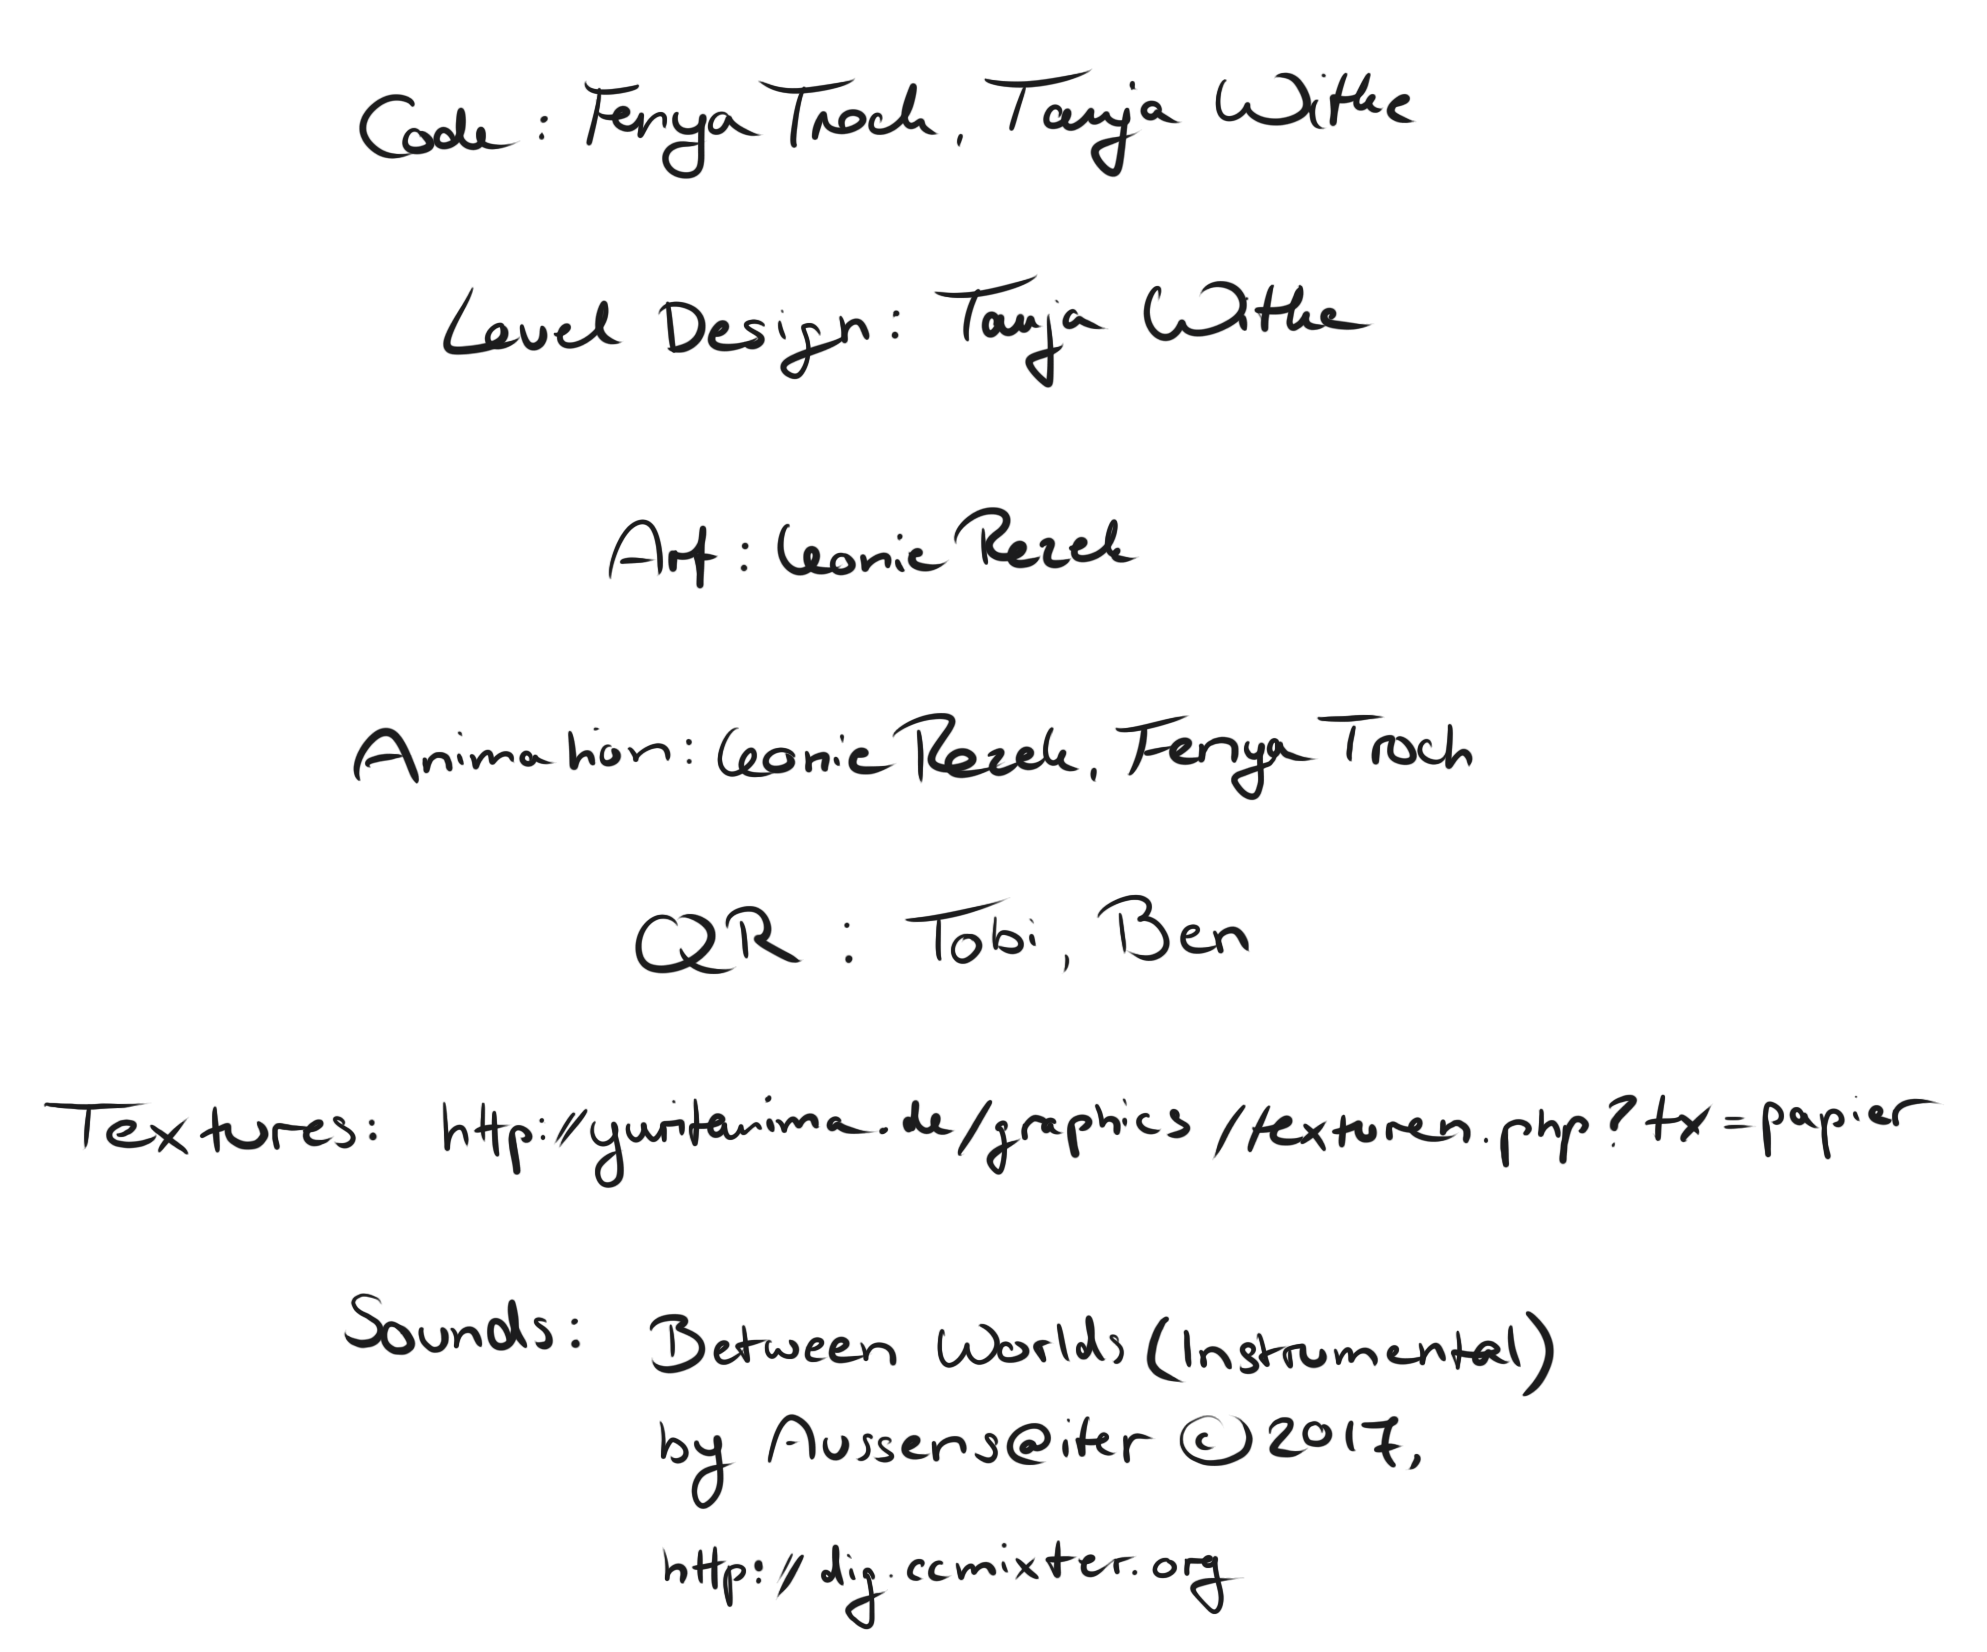 Code: Fenya Troch, Tanja Withe
Level Design: Tanja Withe
Art: Leonie Rezek
Animation: Leonie Rezek, Fenya Troch
QR: Tobi, Ben
Textures: http://yuritanima.de/graphics/texturen.php?tx=papier
Sounds: Between Worlds (Instrumental)
by Aussens@iter © 2017,
http://dig.ccmixter.org